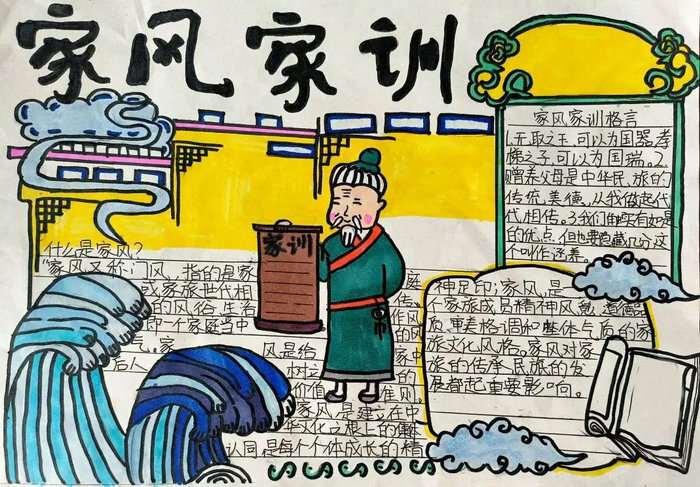 家风家训
家训
什么是家风?
"家风又称门风,指的是家庭
或家族世代相传
的风俗,生活作风
即一个家庭当中的风
气。家风是给家中
后人树立的
价值准则。
家风是建立在中
华文化之根上的集体
认同是每个个体成长的精
神足印;家风,是一
个家族成员精神风貌,道德品
质,审美格调和整体气质的家
族文化风格。家风对家
族的传承,民族的发
展都起重要影响。
家风家训格言
1.无取之子,可以为国器,孝
悌之子,可以为国瑞。2
赡养父母是中华民族的
传统美德,从我做起代
代相传。3我们即使有如是
的优点,但也要隐藏几分,这
个叫作涵养。